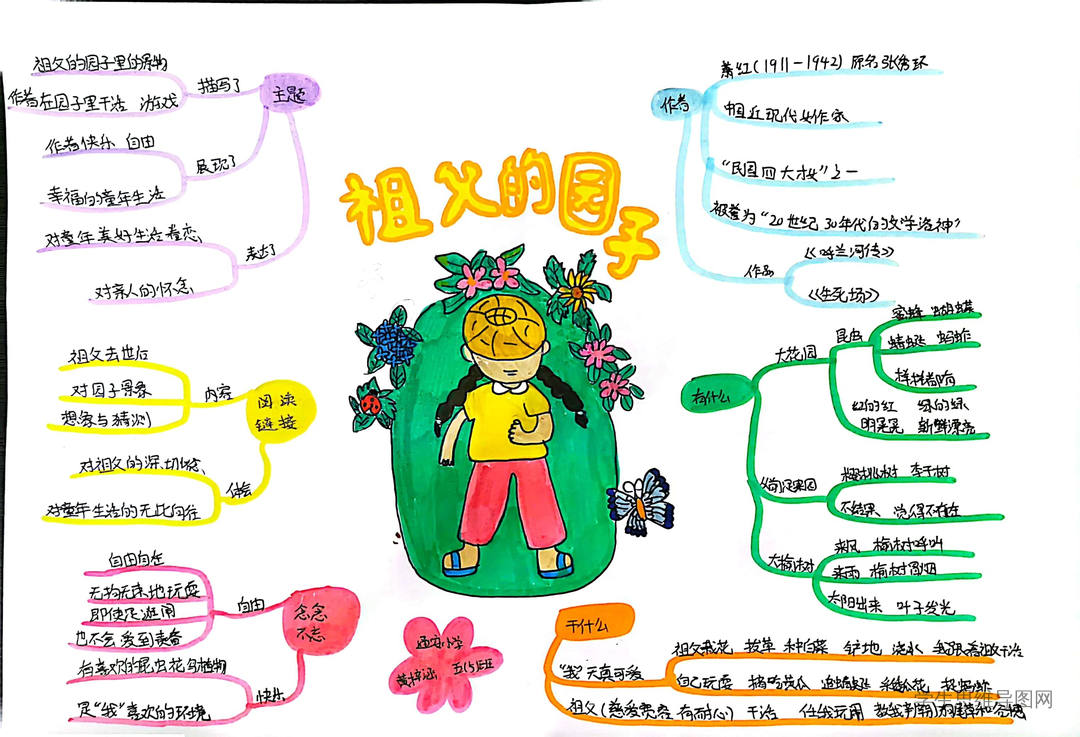 祖父的园子
主题
描写了
祖父的园子里的景物
作者在园子里干活 游戏
展现了
作者快乐 自由
幸福的童年生活
表达了
对童年美好生活眷恋
对亲人的怀念
阅读
链接
内容
祖父去世后
对园子景象
想象与猜测
体会
对祖父的深切怀念
对童年生活的无比向往
念念
不忘
自由
自由自在
无拘无束地玩耍
即使是逛闹
也不会受到责备
快乐
有喜欢的昆虫花鸟植物
是“我”喜欢的环境
作者
萧红(1911-1942) 原名张秀环
中国近现代女作家
“民国四大才女”之一
被誉为“20世纪30年代的文学洛神”
作品
《呼兰河传》
《生死场》
有什么
大花园
昆虫
蜜蜂 蝴蝶
蜻蜓 蚂蚱
样样都有
红的红 绿的绿
明晃晃 新鲜漂亮
樱桃树 李子树
不结果 觉得不存在
大榆树
来风 榆树呼叫
来雨 榆树冒烟
太阳出来 叶子发光
干什么
“我”天真可爱
祖父栽花 拔草 种白菜 铲地 浇水
自己玩耍 摘吃黄瓜 追蜻蜓 采倭瓜花 捉蚂蚱
祖父(慈爱宽容 有耐心) 干活 任我玩闹
西安小学
五(5)班
学生思维导图网